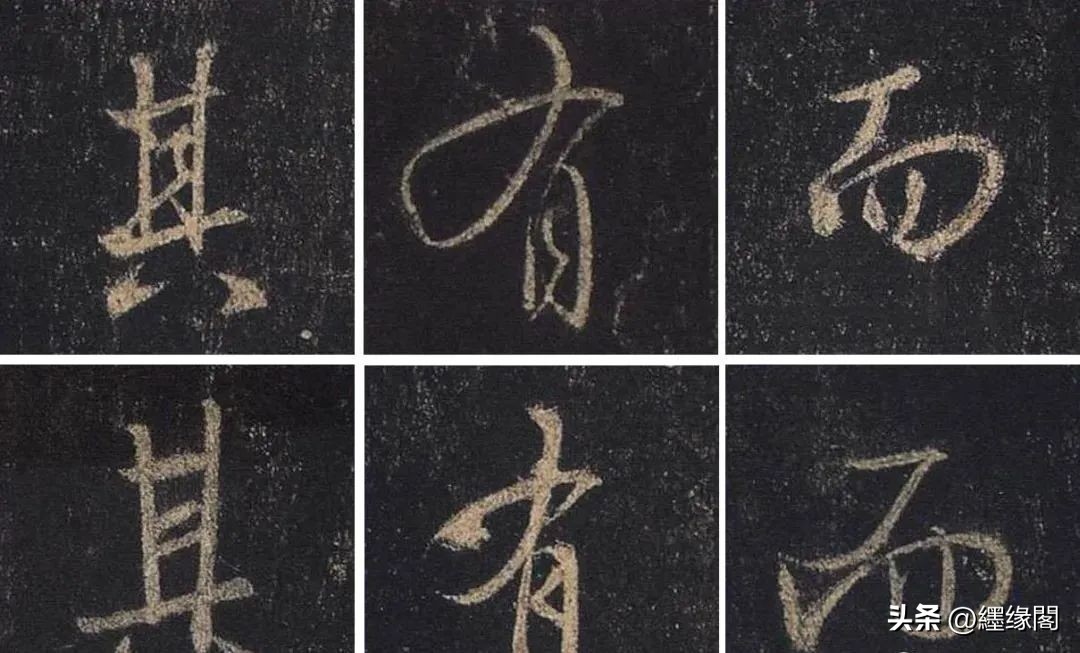 其 有 而
其 有 而
头条 @纆缘閣